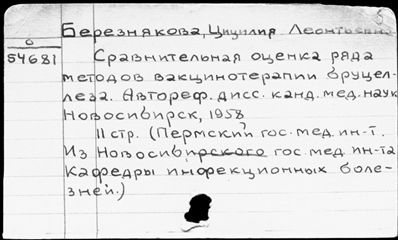 5
Березнякова, Цицилия Леонтьевна
0
54681
Сравнительная оценка ряда
методов вакцинотерапии бруцел-
леза. Автореф. дисс. канд. мед. наук
Новосибирск, 1958
11 стр. (Пермский гос. мед. ин-т.
Из Новосибирского гос. мед. ин-та
Кафедры инфекционных боле-
зней.)